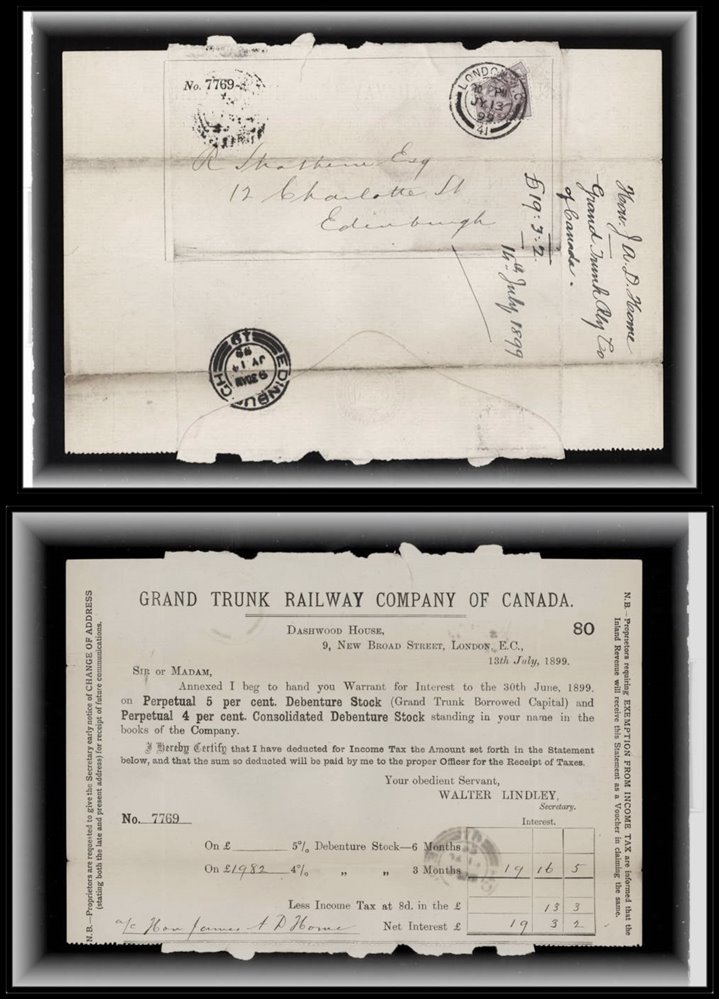 No. 7769
LONDON E.C
JY 13
99
41
R Strathern Esq
12 Charlotte St
Edinburgh
Hon. J A. D. Home
Grand Trunk Rly Co
of Canada.
£19:3:2.
14th July 1899
EDINBURGH
9 30AM
JY 14
99
19
GRAND TRUNK RAILWAY COMPANY OF CANADA.
80
DASHWOOD HOUSE,
9, NEW BROAD STREET, LONDON, E.C.,
13th July, 1899.
SIR OR MADAM,
Annexed I beg to hand you Warrant for Interest to the 30th June, 1899.
on Perpetual 5 per cent. Debenture Stock (Grand Trunk Borrowed Capital) and
Perpetual 4 per cent. Consolidated Debenture Stock standing in your name in the
books of the Company.
I Hereby Certify that I have deducted for Income Tax the Amount set forth in the Statement
below, and that the sum so deducted will be paid by me to the proper Officer for the Receipt of Taxes.
Your obedient Servant,
WALTER LINDLEY,
Secretary.
No. 7769
Interest.
On £ 5% Debenture Stock—6 Months
On £1982 4% „ „ 3 Months 19 16 5
Less Income Tax at 8d. in the £ 13 3
a/c Hon James A D Home Net Interest £ 19 3 2
N.B.—Proprietors are requested to give the Secretary early notice of CHANGE OF ADDRESS
(stating both the late and present address) for receipt of future communications.
N.B.—Proprietors requiring EXEMPTION FROM INCOME TAX are informed that the
Inland Revenue will receive this Statement as a Voucher in claiming the same.